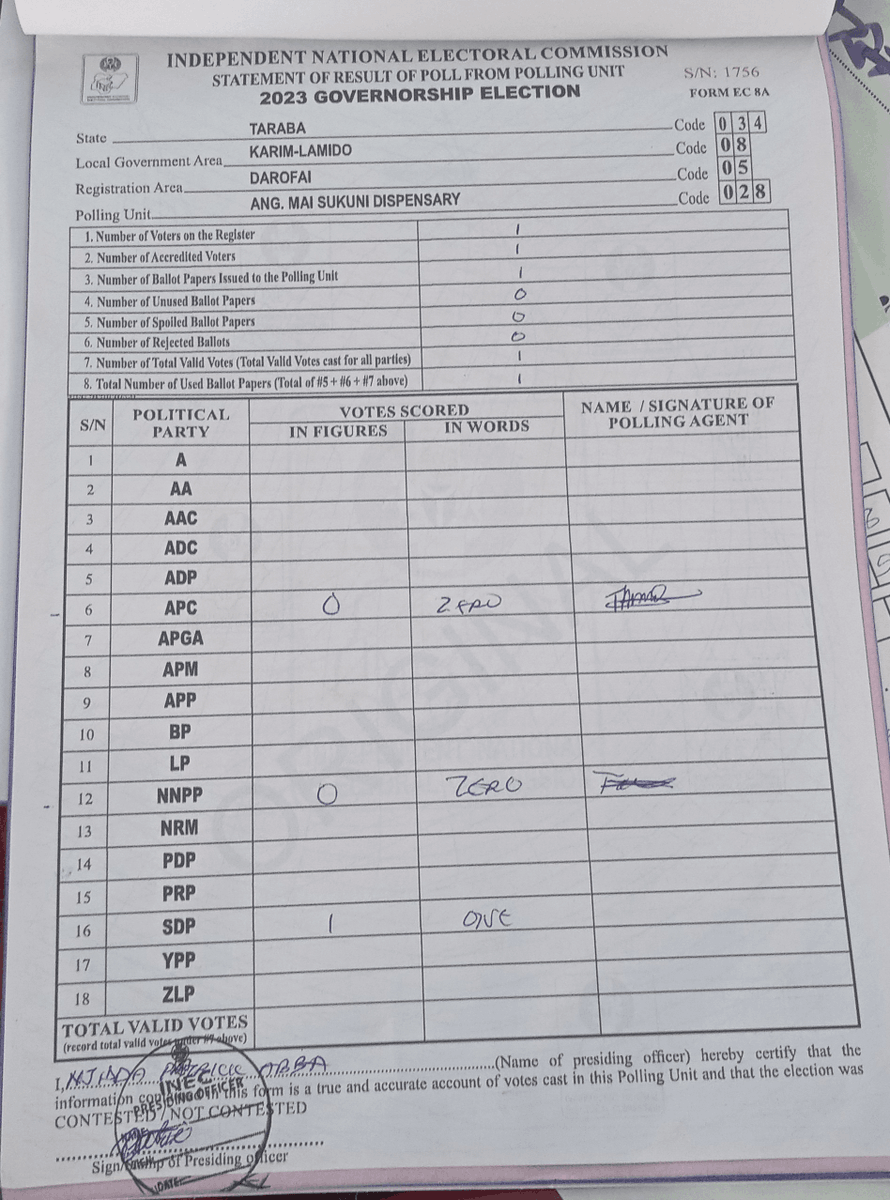 INDEPENDENT NATIONAL ELECTORAL COMMISSION
STATEMENT OF RESULT OF POLL FROM POLLING UNIT
S/N: 1756
2023 GOVERNORSHIP ELECTION
FORM EC 8A
State TARABA Code 0 3 4
Local Government Area KARIM-LAMIDO Code 0 8
Registration Area DAROFAI Code 0 5
Polling Unit ANG. MAI SUKUNI DISPENSARY Code 0 2 8
1. Number of Voters on the Register 1
2. Number of Accredited Voters 1
3. Number of Ballot Papers Issued to the Polling Unit 1
4. Number of Unused Ballot Papers 0
5. Number of Spoiled Ballot Papers 0
6. Number of Rejected Ballots 0
7. Number of Total Valid Votes (Total Valid Votes cast for all parties) 1
8. Total Number of Used Ballot Papers (Total of #5 + #6 + #7 above) 1
S/N POLITICAL PARTY VOTES SCORED NAME / SIGNATURE OF POLLING AGENT
IN FIGURES IN WORDS
1 A
2 AA
3 AAC
4 ADC
5 ADP
6 APC 0 ZERO
7 APGA
8 APM
9 APP
10 BP
11 LP
12 NNPP 0 ZERO
13 NRM
14 PDP
15 PRP
16 SDP 1 ONE
17 YPP
18 ZLP
ORIGINAL
TOTAL VALID VOTES
(record total valid votes under #7 above)
I, (Name of presiding officer) hereby certify that the
information contained in this form is a true and accurate account of votes cast in this Polling Unit and that the election was
CONTESTED / NOT CONTESTED
INEC
PRESIDING OFFICER
Sign/Stamp of Presiding officer
DATE